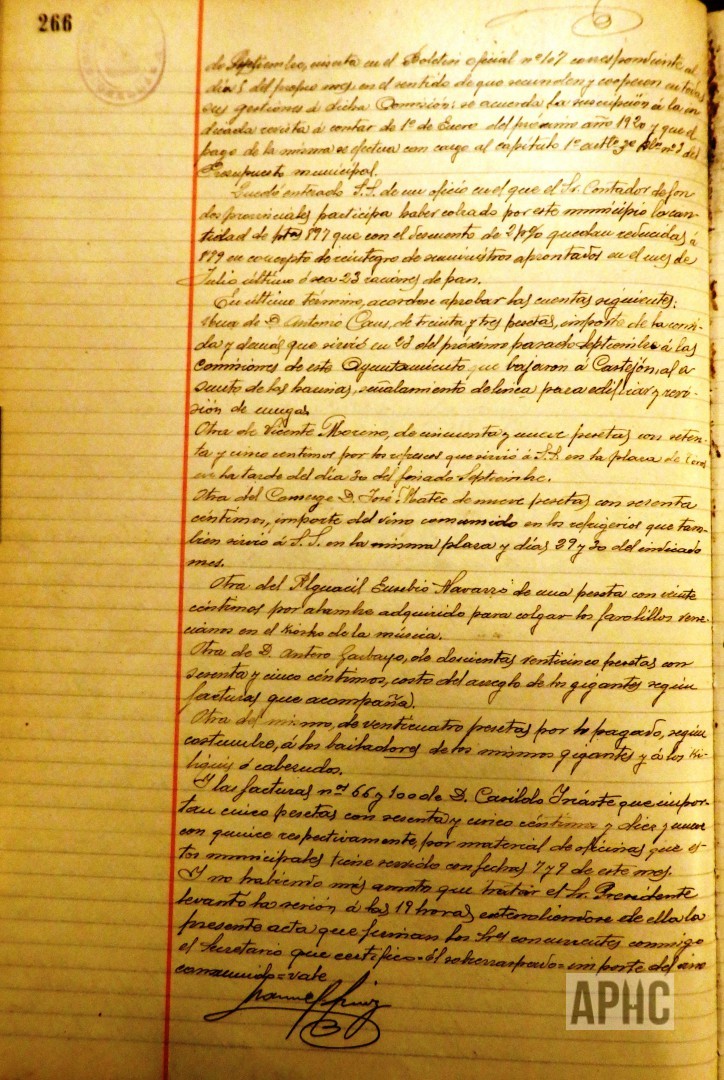 266
de Septiembre, inserta en el Boletin oficial nº 107 correspondiente al
dia 5 del propio mes, en el sentido de que secunden y cooperen en todas
sus gestiones á dicha Comisión: se acuerda la suscripción á la in
dicada revista á contar de 1º de Enero del próximo año 1920 y que el
pago de la misma se efectua con cargo al capitulo 1º artlo 3º nº 3 del
Presupuesto municipal.
Quedó enterado S.S. de un oficio en el que el Sr. Contador de fon
dos provinciales participa haber cobrado por este municipio la can
tidad de ptas 897 que con el descuento de 2 p% quedan reducidas á
879 en concepto de reintegro de suministros aprontados en el mes de
Julio último ó sea 23 raciones de pan.
En último término, acordose aprobar las cuentas siguientes:
Una de D. Antonio Caus, de treinta y tres pesetas, importe de la comi
da y demás que sirvió en 28 del próximo pasado Septiembre á las
comisiones de este Ayuntamiento que bajaron á Castejón, al a
sunto de las havias, señalamiento de linea para edificar y revi
sión de mugas.
Otra de Vicente Moreno, de cincuenta y nueve pesetas con seten
ta y cinco centimos por los refrescos que sirvió á S.S. en la plaza de toros
en la tarde del dia 30 del pasado Septiembre.
Otra del Conserge D. José Mateo de nueve pesetas con sesenta
céntimos, importe del vino consumido en los refrigerios que tam
bien sirvió á S.S. en la misma plaza y dias, 29 y 30 del indicado
mes.
Otra del Alguacil Eusebio Navarro de una peseta con veinte
céntimos por alambre adquirido para colgar los farolillos vene
cianos en el kiosko de la música.
Otra de D. Antero Garbayo, de doscientas venticinco pesetas con
sesenta y cinco céntimos, costo del arreglo de los gigantes según
facturas que acompaña.
Otra del mismo, de venticuatro pesetas por lo pagado, según
costumbre, á los bailadores de los mismos gigantes y á los ki-
likis ó cabezudos.
Y las facturas nos 66 y 100 de D. Casildo Iriarte que impor-
tan cinco pesetas con sesenta y cinco céntimos y diez y nueve
con quince respectivamente, por material de oficinas que es
tos municipales tiene servido con fechas 7 y 9 de este mes.
Y no habiendo más asunto que tratar el Sr. Presidente
levanto la sesión á las 19 horas extendiendose de ella la
presente acta que firman los Sres concurrentes conmigo
el Secretario que certifico = El sobrerraspado = importe del vino
consumido = vale
APHC